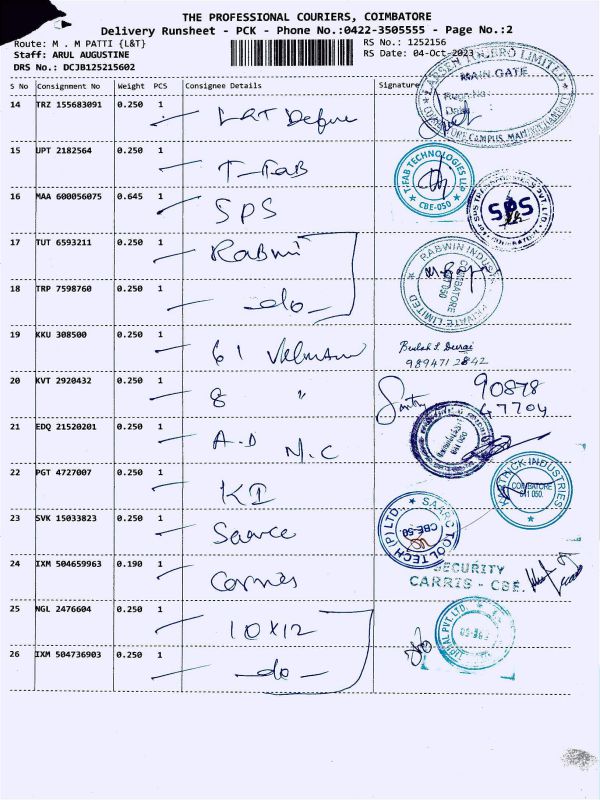 THE PROFESSIONAL COURIERS, COIMBATORE
Delivery Runsheet - PCK - Phone No.:0422-3505555 - Page No.:2
Route: M . M PATTI {L&T}
RS No.: 1252156
Staff: ARUL AUGUSTINE
RS Date: 04-Oct-2023
DRS No.: DCJB125215602
S No Consignment No Weight PCS Consignee Details Signature
14 TRZ 155683091 0.250 1
L&T
MAIN GATE
15 UPT 2182564 0.250 1
T-FAB
T.FAB TECHNOLOGIES
CBE-050
16 MAA 600056075 0.645 1
SPS
SPS
17 TUT 6593211 0.250 1
RABWIN INDUSTRIES
PRIVATE LIMITED
COIMBATORE
18 TRP 7598760 0.250 1
-do-
19 KKU 308500 0.250 1
61
989471 2842
20 KVT 2920432 0.250 1
8 "
90878
47704
21 EDQ 21520201 0.250 1
A.D M.C
22 PGT 4727007 0.250 1
KI
KARTHICK INDUSTRIES
COIMBATORE
641 050.
23 SVK 15033823 0.250 1
SAARC TOOL TECH (P) LTD.
CBE-50.
24 IXM 504659963 0.190 1
SECURITY
CARRIS - CBE.
25 NGL 2476604 0.250 1
10x12
26 IXM 504736903 0.250 1
-do-